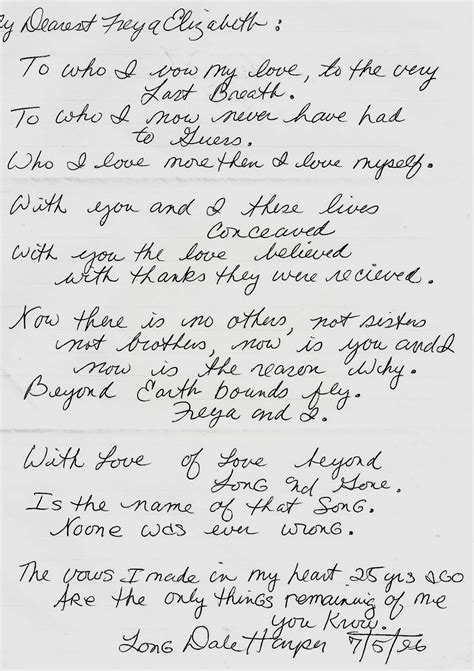 ey Dearest Freya Elizabeth :
To who I vow my love, to the very
Last Breath.
To who I now never have had
to Guess.
Who I love more then I love myself.
With you and I these lives
conceaved
With you the love believed
with thanks they were recieved.
Now there is no others, not sisters
not brothers, now is you and I
now is the reason Why.
Beyond Earth bounds fly.
Freya and I.
With Love of Love beyond
Long and Gone.
Is the name of that Song.
Noone was ever wrong.
The vows I made in my heart 25 yrs ago
Are the only things remaining of me
you Know.
Long Dale Harper 7/5/96